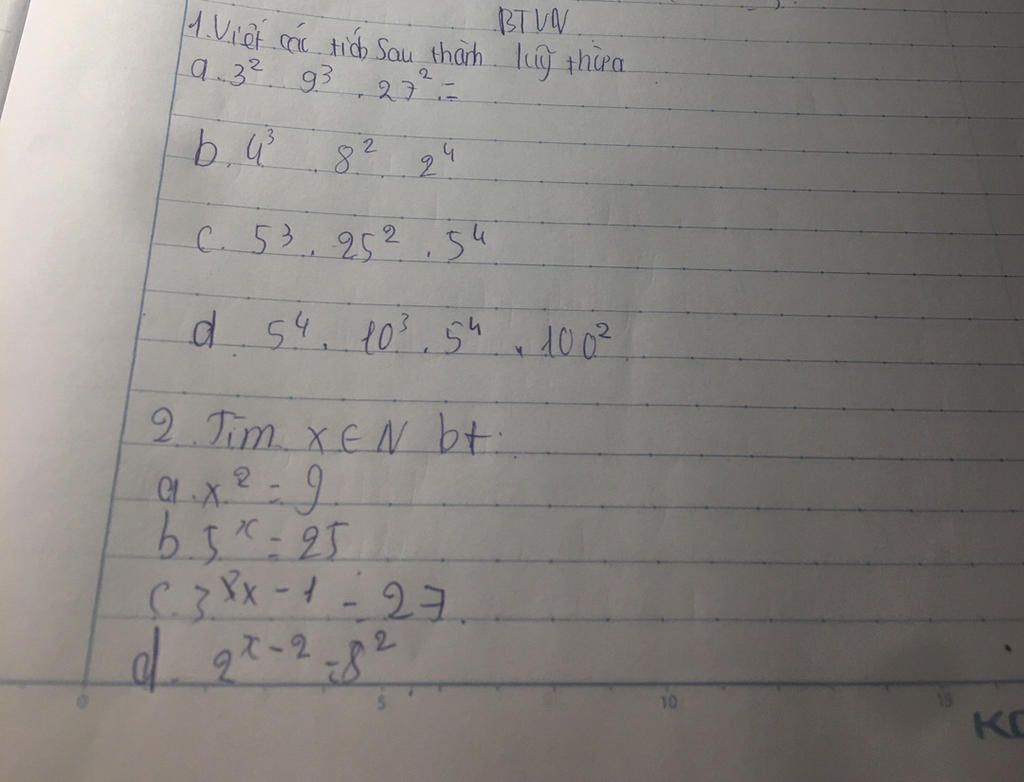 BTVN
1. Viết các tích sau thành luỹ thừa
a. 3² 9³ . 27² =
b. 4³ . 8² 2⁴
c. 5³ . 25² . 5⁴
d. 5⁴ . 10³ . 5⁴ . 100²
2. Tìm x ∈ N bt:
a. x² = 9
b. 5ˣ = 25
c. 3 ˣ⁻¹ = 27
d. 2ˣ⁻² = 8²
0 5 10 15